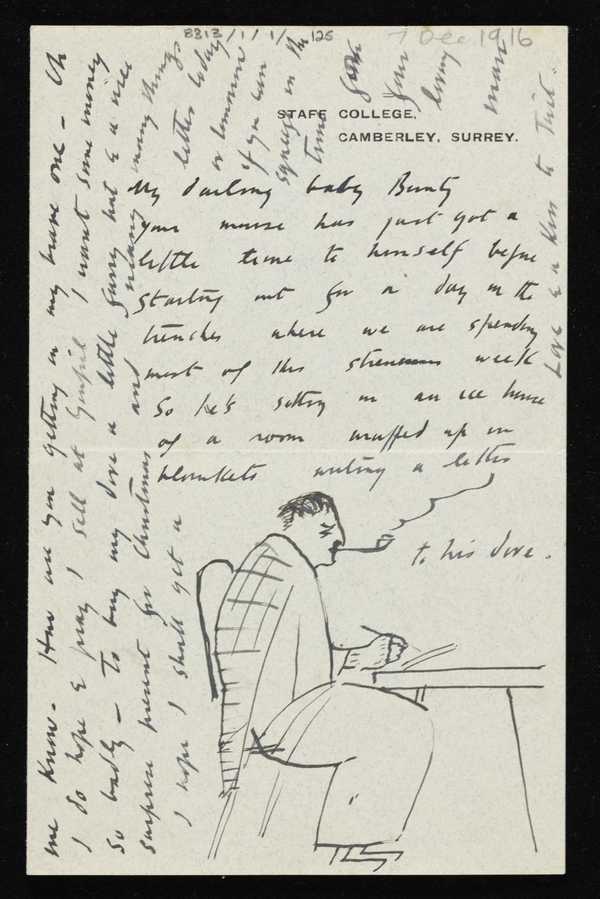 8313/1/1/ 125
7 Dec 1916
STAFF COLLEGE,
CAMBERLEY, SURREY.
My darling baby Bunty
your mouse has just got a
little time to himself before
starting out for a day in the
trenches where we are spending
most of this strenuous week
So he's sitting in an ice house
of a room wrapped up in
blankets writing a letter
to his dove.
me know - How are you getting on my brave one - Oh
I do hope & pray I sell at I want some money
so badly - To buy my dove a little furry hat & a nice
surprise present for Christmas and many many things
I hope I shall get a
letter today
or tomorrow
if you can
squeeze in the
time
your
loving
mouse
Love & a Kiss to